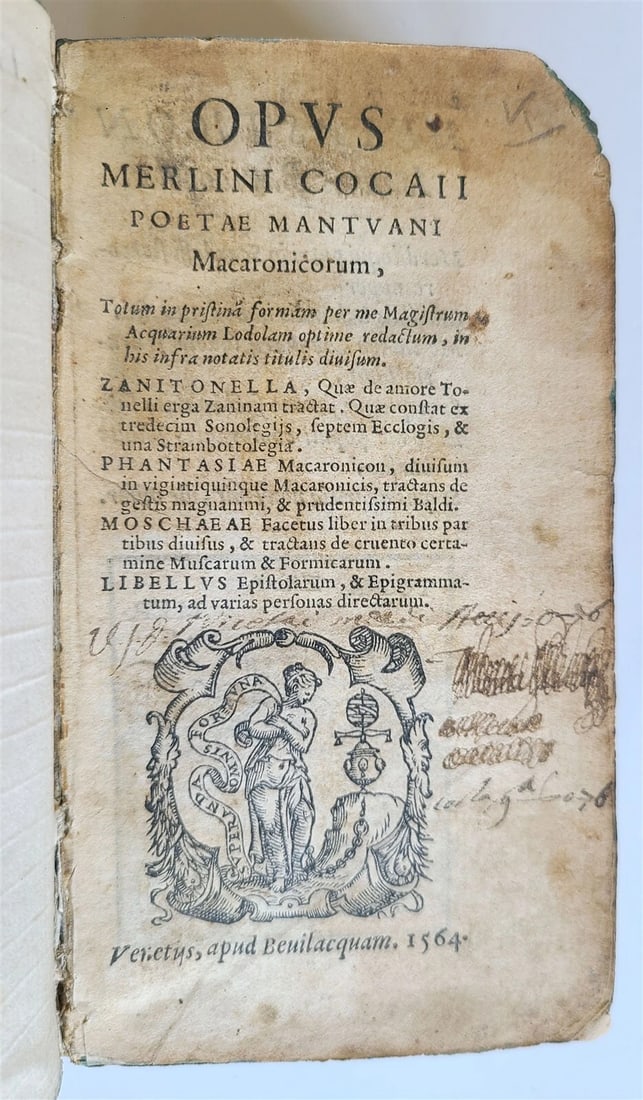 OPVS
MERLINI COCAII
POETAE MANTVANI
Macaronicorum,
Totum in pristinã formam per me Magistrum
Acquarium Lodolam optime redactum, in
his infra notatis titulis diuisum.
ZANITONELLA, Quæ de amore To-
nelli erga Zaninam tractat. Quæ constat ex
tredecim Sonolegijs, septem Ecclogis, &
una Strambottolegia.
PHANTASIAE Macaronicon, diuisum
in vigintiquinque Macaronicis, tractans de
gestis magnanimi, & prudentissimi Baldi.
MOSCHAEAE Facetus liber in tribus par
tibus diuisus, & tractans de cruento certa-
mine Muscarum & Formicarum.
LIBELLVS Epistolarum, & Epigramma-
tum, ad varias personas directarum.
SVPERANDA OMNIS FORTVNA
Venetijs, apud Beuilacquam. 1564.